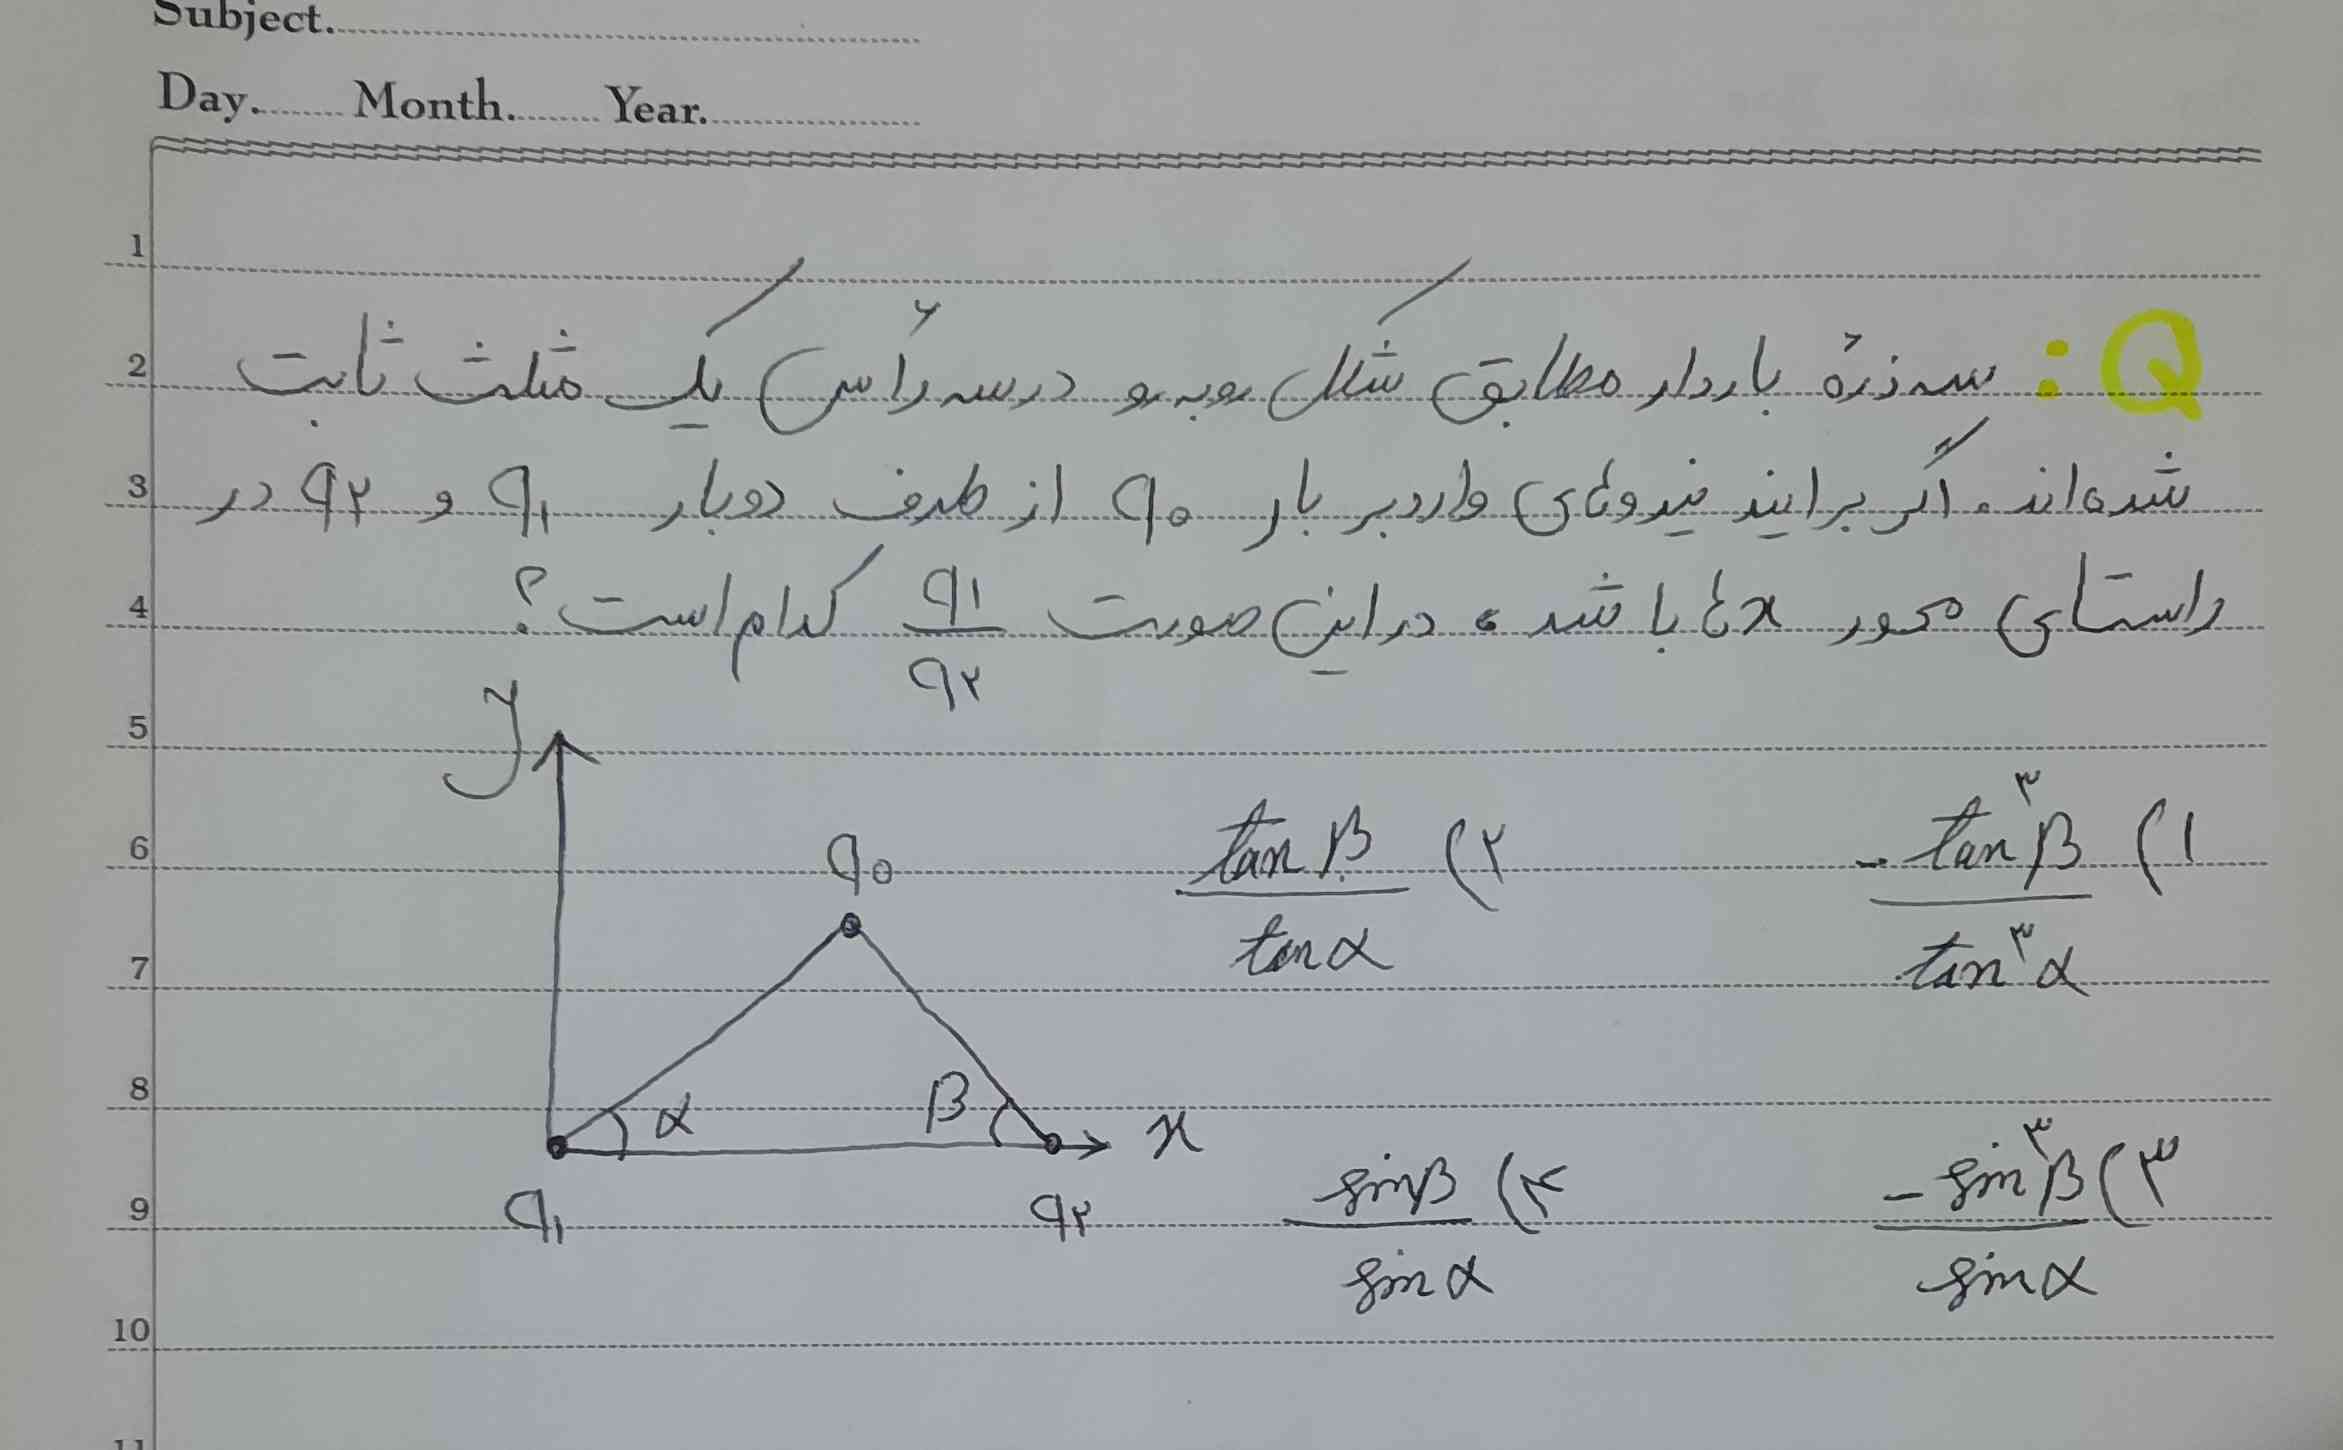 Subject.
Day. Month. Year.
1
2
3
4
5
6
7
8
9
10
11
Q: سه ذرهٔ باردار مطابق شکل روبه رو در سه رأس یک مثلث ثابت
شده‌اند. اگر برایند نیروهای وارد بر بار q₀ از طرف دو بار q₁ و q₂ در
راستای محور xها باشد، در این صورت q₁/q₂ کدام است؟
y
q₀
α
β
x
q₁
q₂
۱) -tan³β / tan³α
۲) tanβ / tanα
۳) -sin³β / sinα
۴) sinβ / sinα